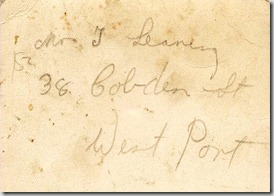 Mr J Leaney
38 Cobden St
West Port